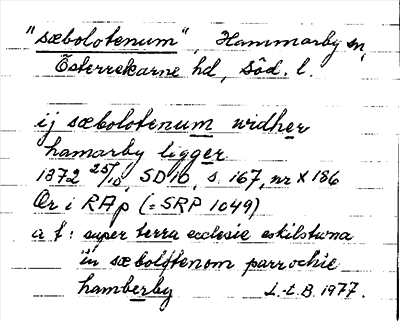 "sæbolotenum", Hammarby sn,
Österrekarne hd, Söd. l.
ij sæbolotenum widher
hamarby ligger
1372 25/10, SD 10, s. 167, nr X 186
Or i RAp (=SRP 1049)
a t: super terra ecclesie eskilstwna
in sæbolôtenom parrochie
hamberby L.-E.B. 1977.